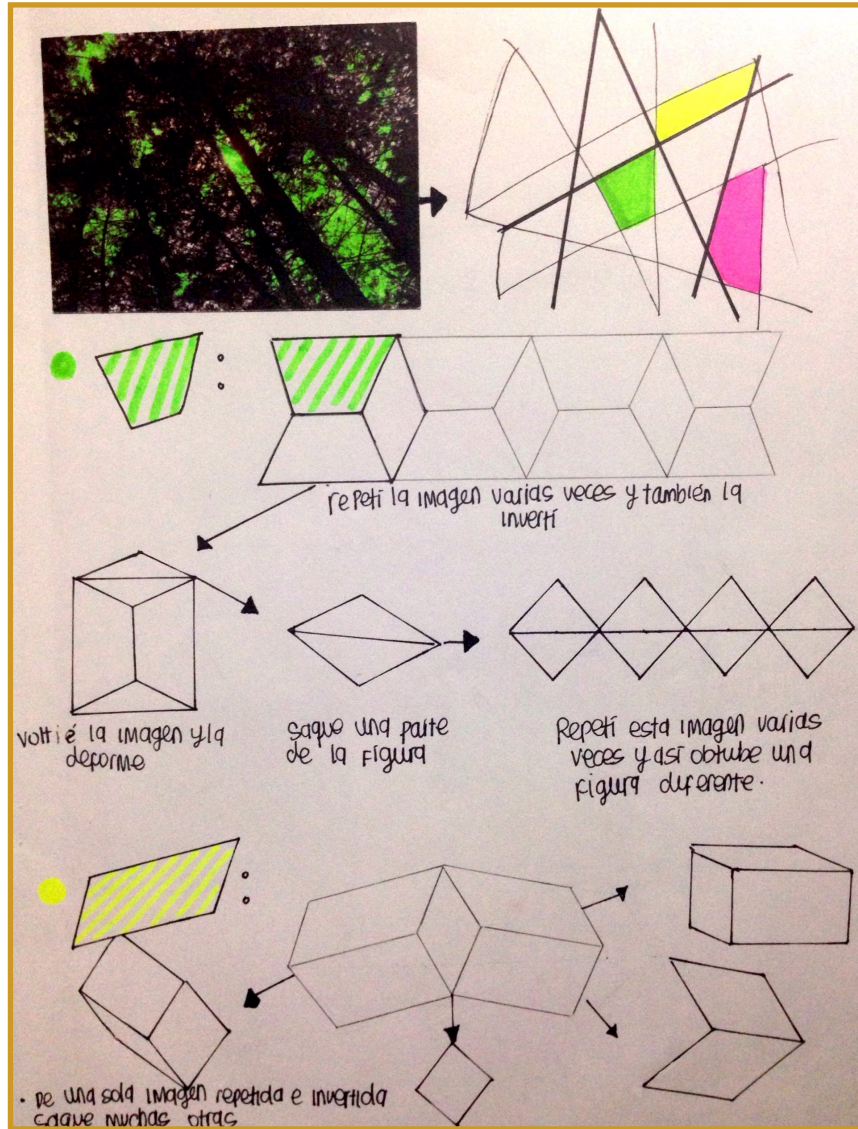 repetí la imagen varias veces y también la
invertí
voltié la imagen y la
deforme
saque una parte
de la figura
Repetí esta imagen varias
veces y así obtube una
figura diferente.
. De una sola imagen repetida e invertida
saque muchas otras